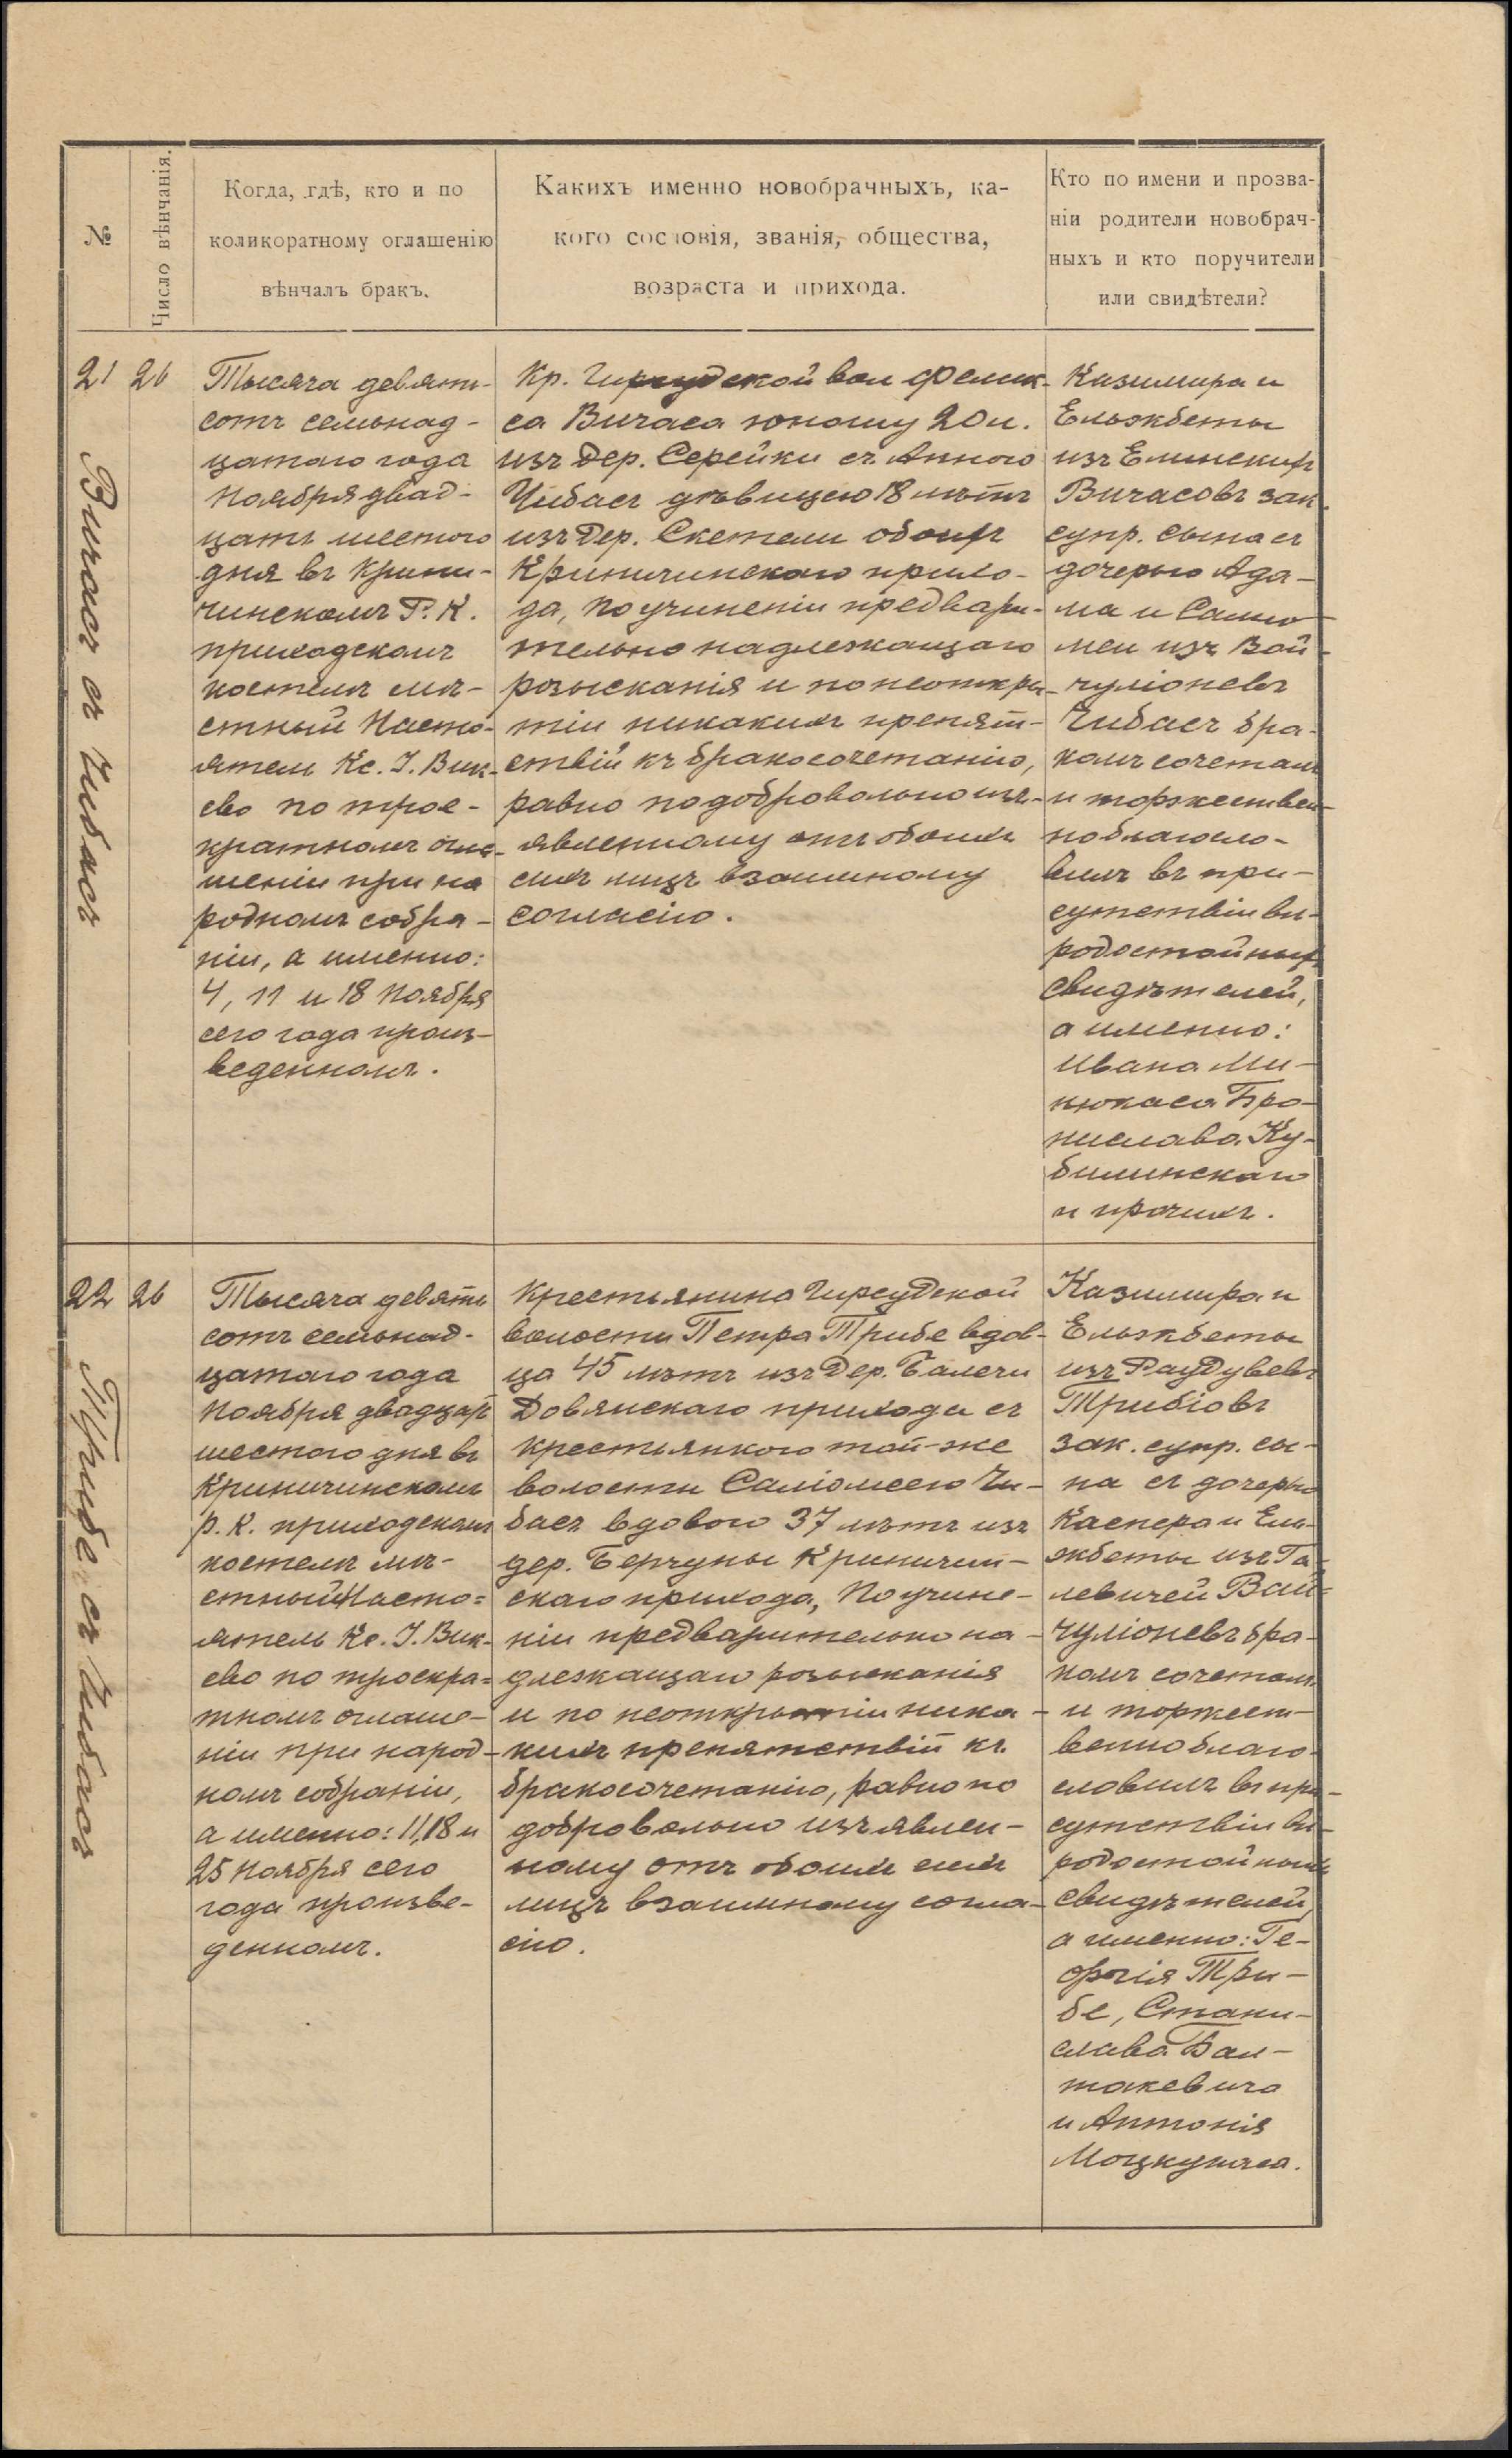 №
Число вѣнчанія.
Когда, гдѣ, кто и по
коликоратному оглашенію
вѣнчалъ бракъ.
Какихъ именно новобрачныхъ, ка-
кого сословія, званія, общества,
возраста и прихода.
Кто по имени и прозва-
ніи родители новобрач-
ныхъ и кто поручители
или свидѣтели?
21
26
Вичасъ съ Чибасъ
Тысяча девять-
сотъ семьнад-
цатаго года
Ноября двад-
цать шестого
дня въ Крини-
чинскомъ Р. К.
приходскомъ
костелѣ мѣ-
стный Насто-
ятель Кс. І. Вик-
сво по трое-
кратномъ огла-
шеніи при на
родномъ собра-
ніи, а именно:
4, 11 и 18 Ноября
сего года произ-
веденномъ.
Кр. Гирсудской вол Фелик-
са Вичаса юношу 20 л.
изъ дер. Серейки съ Анною
Чибасъ дѣвицею 18 лѣтъ
изъ дер. Скетели обоихъ
Криничинскаго прихо-
да, по учиненіи предвари-
тельно надлежащаго
розысканія и по неоткры-
тіи никакихъ препят-
ствій къ бракосочетанію,
равно по добровольно изъ-
явленному отъ обоихъ
сихъ лицъ взаимному
согласію.
Казимира и
Ельжбеты
изъ Елинскихъ
Вичасовъ зак.
супр. сына съ
дочерью Ада-
ма и Салио-
меи изъ Вай-
чуліоневъ
Чибасъ бра-
комъ сочеталъ
и торжествен-
но благосло-
вилъ въ при-
сутствіи вѣ-
родостойныхъ
свидѣтелей,
а именно:
Ивана Ми-
кюкаса Бро-
нислава Ку-
билинскаго
и прочихъ.
22
26
Трибе съ Чибасъ
Тысяча девять
сотъ семьнад-
цатаго года
Ноября двадцать
шестого дня въ
Криничинскомъ
р. К. приходскомъ
костелѣ мѣ-
стный Насто-
ятель Кс. І. Вик-
сво по троекра-
тномъ оглаше-
ніи при народ-
номъ собраніи,
а именно: 11, 18 и
25 Ноября сего
года произве-
денномъ.
Крестьянина Гирсудской
волости Петра Трибе вдов-
ца 45 лѣтъ изъ дер. Балечи
Довянскаго прихода съ
крестьянкою той-же
волости Саліомеею Чи-
басъ вдовою 37 лѣтъ изъ
дер. Берчуны Криничин-
скаго прихода, по учине-
ніи предварительно на-
длежащаго розысканія
и по неоткрытіи ника-
кихъ препятствій къ
бракосочетанію, равно по
добровольно изъявлен-
ному отъ обоихъ сихъ
лицъ взаимному согла-
сію.
Казимира и
Ельжбеты
изъ Раудувевъ
Трибіовъ
зак. супр. сы-
на съ дочерью
Каспера и Ель-
жбеты изъ Га-
левичей Вай-
чуліоневъ бра-
комъ сочеталъ
и торжест-
венно благо-
словилъ въ при-
сутствіи вѣ-
родостойныхъ
свидѣтелей,
а именно: Ге-
оргія Три-
бе, Стани-
слава Бал-
такевича
и Антонія
Моцкунаса.